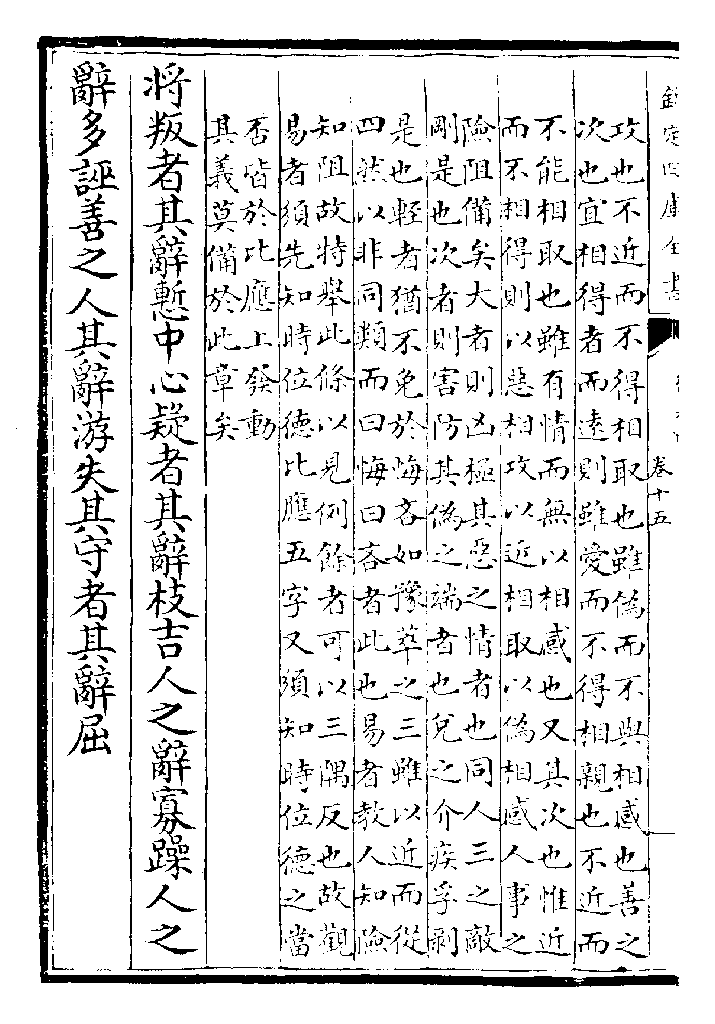 欽定四庫全書
卷十五
攻也不近而不得相取也雖偽而不與相感也善之
次也宜相得者而遠則雖愛而不得相親也不近而
不能相取也雖有情而無以相感也又其次也惟近
而不相得則以惡相攻以近相取以偽相感人事之
險阻備矣大者則凶極其惡之情者也同人三之敵
剛是也次者則害防其偽之端者也兌之介疾孚剥
是也輕者猶不免於悔吝如豫萃之三雖以近而從
四然以非同類而曰悔曰吝者此也易者教人知險
知阻故特舉此條以見例餘者可以三隅反也故觀
易者須先知時位德比應五字又須知時位德之當
否皆於比應上發動
其義莫備於此章矣
將叛者其辭慙中心疑者其辭枝吉人之辭寡躁人之
辭多誣善之人其辭游失其守者其辭屈